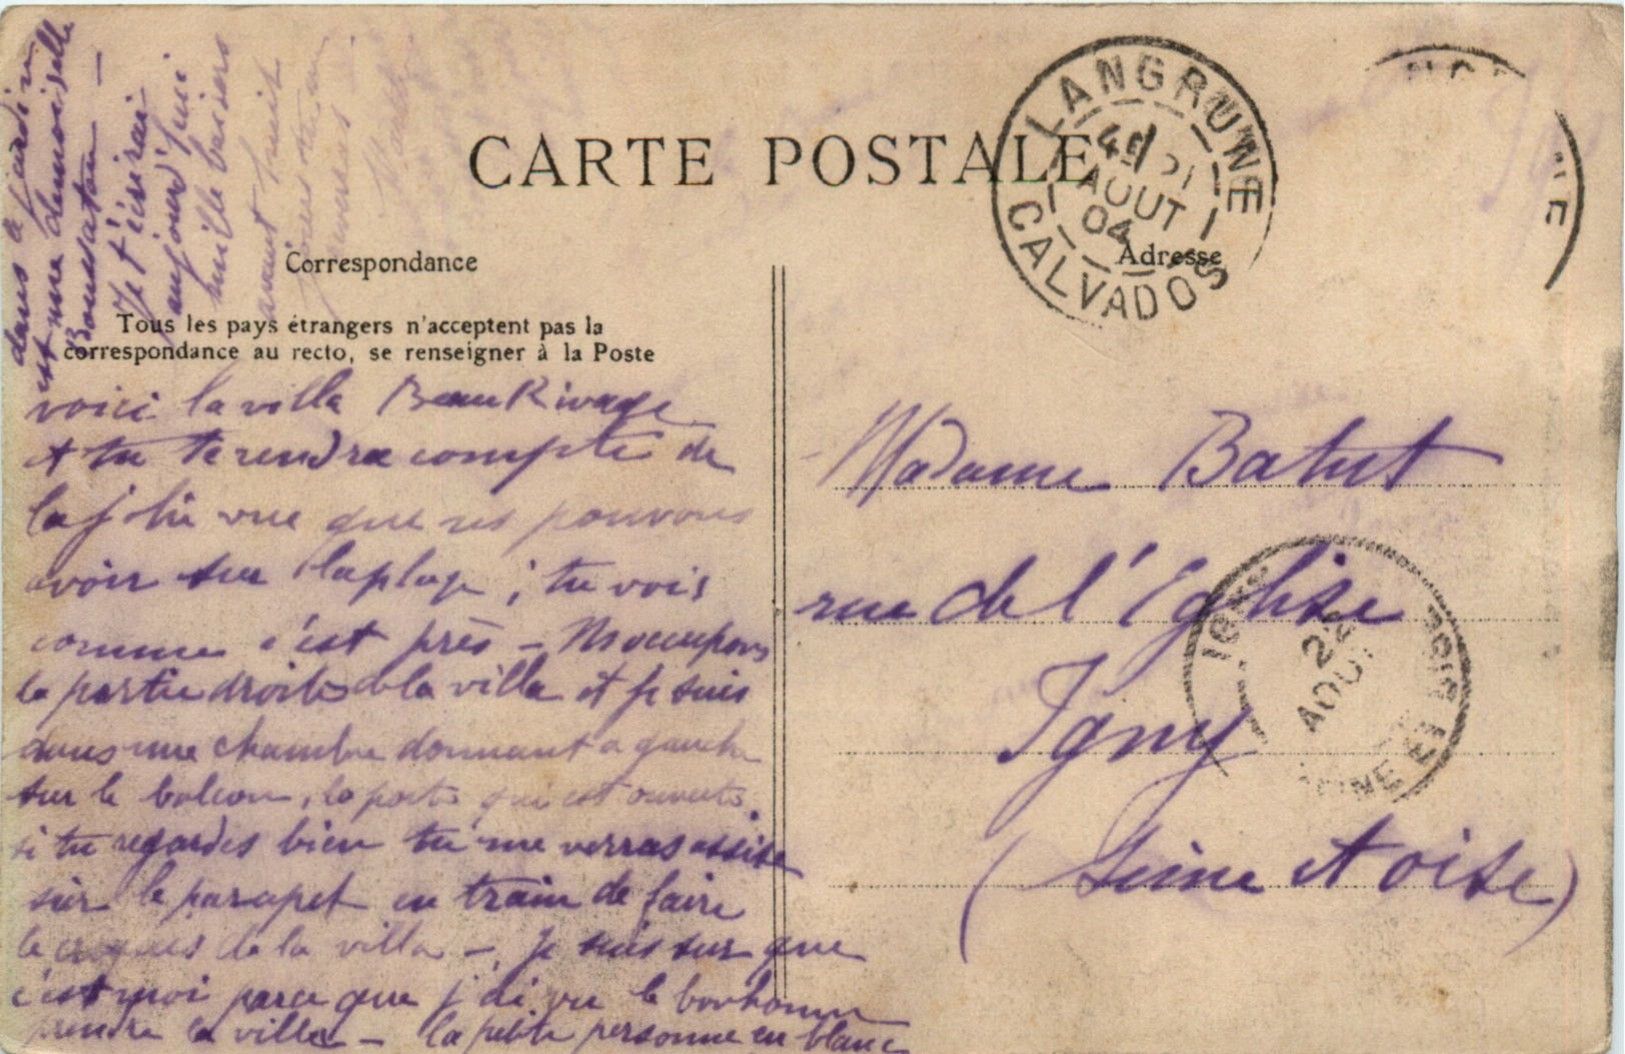 CARTE POSTALE
Correspondance
Adresse
Tous les pays étrangers n'acceptent pas la
correspondance au recto, se renseigner à la Poste
LANGRUNE
CALVADOS
AOUT
04
voici la villa Beau Rivage
et tu te rendra compte de
la jolie vue que ns pouvons
avoir sur la plage ; tu vois
comme c'est près - Ns occupons
la partie droite de la villa et je suis
dans une chambre donnant a gauche
sur le balcon, la porte qui est ouverte.
si tu regardes bien tu me verras assise
sur le parapet en train de faire
le croquis de la villa - Je suis sur que
c'est moi parce que j'ai vu le bonhomme
prendre la villa - la petite personne en blanc
dans le jardin
est une demoiselle
Boussaton -
Je t'écrirai
aujourd'hui
mille baisers
avant huit
Madame Batut
rue de l'Eglise
Igny
(Seine et Oise)
IGNY
22
AOUT